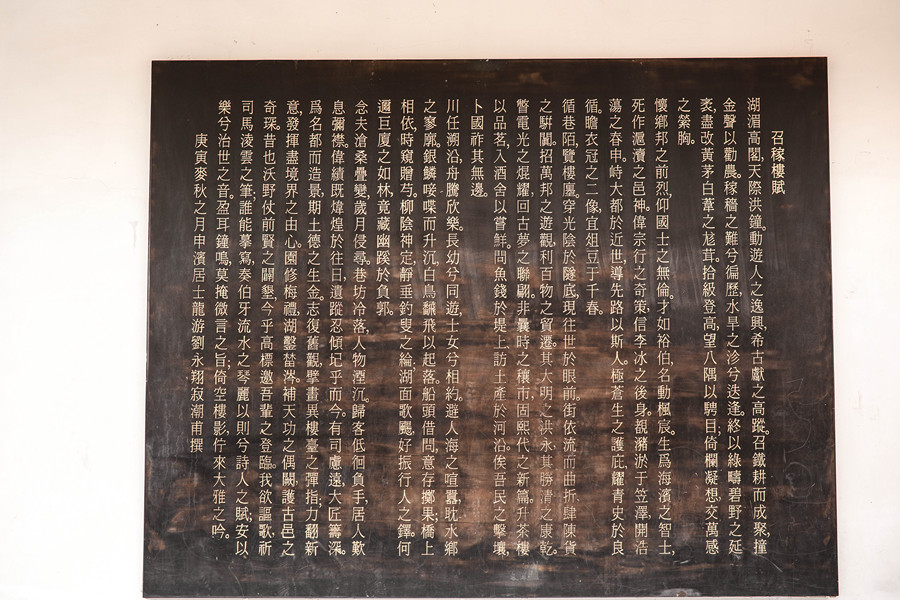 召稼樓賦
湖湄高閣，天際洪鐘。動遊人之逸興，希古獻之高蹤。召鐵耕而成聚，撞
金聲以勸農。稼穡之難兮徧歷，水旱之沴兮迭逢。終以綠疇碧野之延
袤，盡改黃茅白葦之尨茸。拾級登高，望八隅以騁目；倚欄凝想，交萬感
之縈胸。
懷鄉邦之前烈，仰國士之無倫。才如裕伯，名動楓宸。生爲海濱之智士，
死作滬瀆之邑神。偉宗行之奇策，信李冰之後身。覩瀦淤于笠澤，開浩
蕩之春申。峙大都於近世，導先路以斯人。極蒼生之護庇，耀青史於良
循。瞻衣冠之二像，宜俎豆于千春。
循巷陌，覽樓廛。穿光陰於隧底，現往世於眼前。街依流而曲折，肆陳貨
之駢闐。招萬邦之遊觀，利百物之貿遷。其大明之洪永，其勝清之康乾。
瞥電光之焜耀，回古夢之聯翩。非曩時之穰市，固熙代之新篇。升茶樓
以品茗，入酒舍以嘗鮮。問魚錢於堤上，訪土產於河沿。俟吾民之擊壤，
卜國祚其無邊。
川任溯沿，舟騰欣樂。長幼兮同遊，士女兮相約。避人海之喧囂，耽水鄉
之寥廓。銀鱗唼喋而升沉，白鳥翩飛以起落。船頭借問，意存擲果；橋上
相依，時窺贈芍。柳陰神定，靜垂釣叟之綸；湖面歌颺，好振行人之鐸。何
邇巨廈之如林，竟藏幽蹊於負郭。
念夫滄桑疊變，歲月侵尋。巷坊冷落，人物湮沉。歸客低徊負手，居人歎
息彌襟。偉績既煒煌於往日，遺蹤忍傾圮乎而今。有司慮遠，大匠籌深。
爲名都而造景，期土德之生金。志復舊觀，擘畫異樓臺之彈指；力翻新
意，發揮盡境界之由心。園修梅禮，湖鑿菶涔。補天功之偶闕，護古邑之
奇琛。昔也沃野，仗前賢之闢墾；今乎高標，邀吾輩之登臨。我欲謳歌，祈
司馬淩雲之筆；誰能摹寫，奏伯牙流水之琴。麗以則兮詩人之賦，安以
樂兮治世之音。盈耳鐘鳴，莫掩微言之旨；倚空樓影，佇來大雅之吟。
庚寅麥秋之月申濱居士龍游劉永翔寂潮甫撰